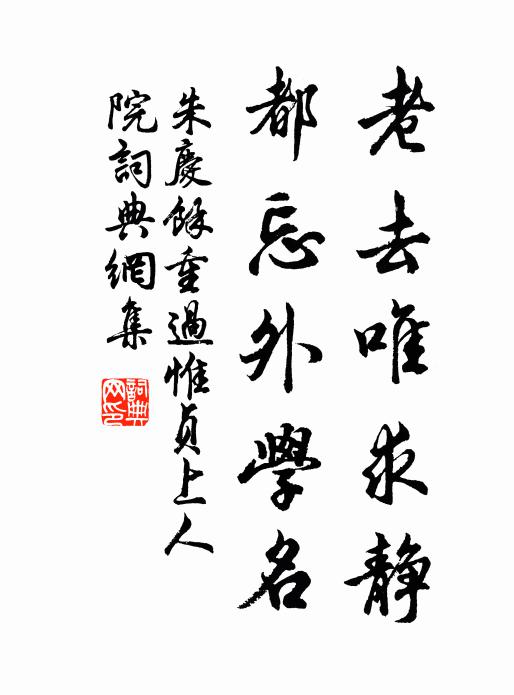 老去唯求静
都忘外學名
朱慶餘重過惟貞上人
院詞典網集
詞典网印